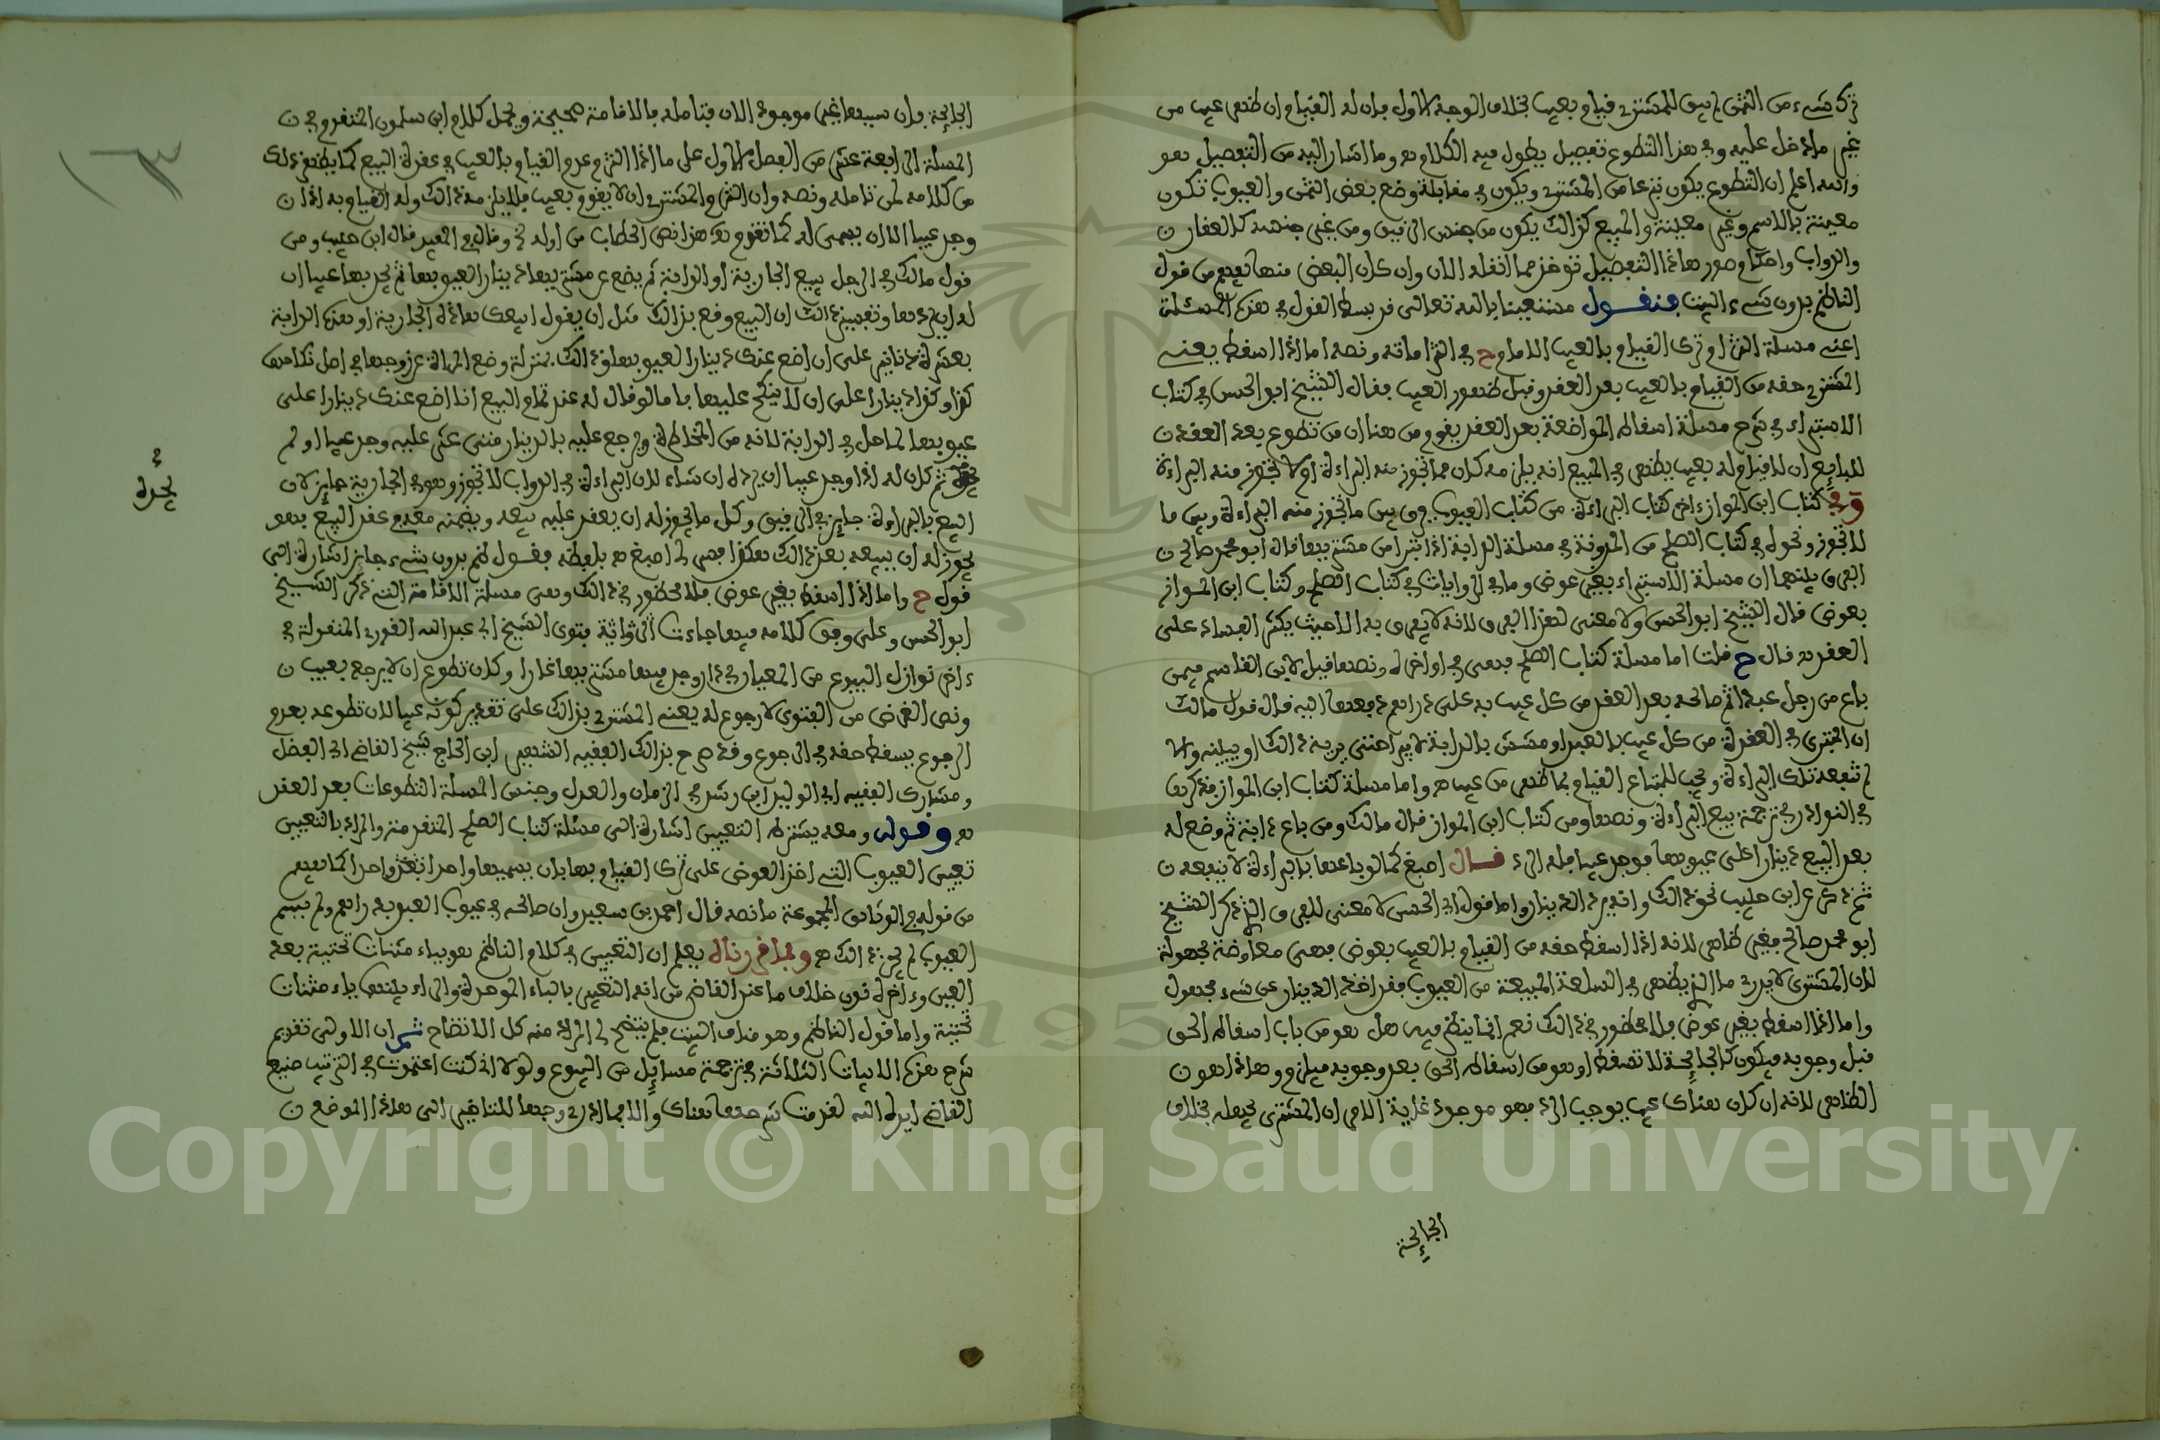 ترك شيء من الثمن لم يبق للمشتري قيام بعيب بخلاف الوجه الاول فان له القيام ان ظهر عيب من
غير ما دخل عليه وفي هذا التطوع تفصيل يطول فيه الكلام ه وما اشار اليه من التفصيل هو
والله اعلم ان التطوع يكون تبرعا من المشتري ويكون في مقابلة وضع بعض الثمن والعيوب تكون
معينة بالاسم وغير معينة والمبيع كذالك يكون من جنس الرقيق ومن غير جنسه كالعقار
والدواب واحكام صور هاذا التفصيل توخذ مما انقله الان وان كان البعض منها يفهم من قول
الناظم بدون شيء البيت فنقول مستعينا بالله تعالى في بسط القول في هذه المسئلة
اعني مسئلة التزام ترك القيام بالعيب الامام ح في التزاماته ونصه اما اذا اسقط يعني
المشتري حقه من القيام بالعيب بعد العقد وقبل ظهور العيب فقال الشيخ ابو الحسن في كتاب
الاستبراء في شرح مسئلة اسقاط المواضعة بعد العقد يقوم من هنا ان من تطوع بعد العقد
للبايع ان لا قيام له بعيب يظهر في المبيع انه يلزمه كان مما تجوز فيه البراءة او لا تجوز منه البراءة
وفي كتاب ابن المواز اخر كتاب البراءة من كتاب العيوب فرق بين ما تجوز منه البراءة وبين ما
لا تجوز ونحوه في كتاب الصلح من المدونة في مسئلة الدابة اذا تبرا من مشتريها قال ابو محمد صالح
الفرق بينهما ان مسئلة الاستبراء بغير عوض وما في الروايات في كتاب الصلح وكتاب ابن المواز
بعوض قال الشيخ ابو الحسن ولا معنى لهذا الفرق لانه لا يفرق به الا حيث يكثر الفساد على
العقد ه قال ح قلت اما مسئلة كتاب الصلح فهي في اواخره ونصها قيل لابن القاسم فيمن
باع من رجل عبدا ثم صالحه بعد العقد من كل عيب به على دراهم دفعها اليه قال قول مالك
ان المتبري في العقدة من كل عيب بالعبد او مشش بالدابة لا يبرا حتى يريه ذالك او يبينه والا
لم تنفعه تلك البراءة ويجب للمبتاع القيام بما ظهر من عيب ه واما مسئلة كتاب ابن المواز فذكرها
في النوادر في ترجمة بيع البراءة ونصها ومن كتاب ابن المواز قال مالك ومن باع دابة ثم وضع له
بعد البيع دينارا على عيوبها فوجد عيبا فله الرد قال اصبغ كما لو باعها بالبراءة لا ينفعه
ثم ذكر عن ابن حبيب نحو ذالك وانه يرد الدينار واما قول ابي الحسن لا معنى للفرق الذي ذكر الشيخ
ابو محمد صالح فغير ظاهر لانه اذا اسقط حقه من القيام بالعيب بعوض فهي معاوضة مجهولة
لان المشتري لا يدري ما الذي يظهر في السلعة المبيعة من العيوب فقد اخذ الدينار عن شيء مجهول
واما اذا اسقط بغير عوض فلا محظور في ذالك نعم انما ينظر فيه هل هو من باب اسقاط الحق
قبل وجوبه فيكون كالجايحة لا تسقط او هو من اسقاط الحق بعد وجوبه فيلزم وهاذا هو
الظاهر لانه ان كان هناك عيب يوجب الرد فهو موجود غاية الامر ان المشتري يجهله بخلاف
الجايحة
الجايحة فان سببها غير موجود الان فتامله بالاقامة صحيحة ويحمل كلام ابن سلمون المتقدم في
المسئلة الرابعة عشر من الفصل الاول على ما اذا التزم عدم القيام بالعيب في عقدة البيع كما يظهر ذلك
من كلامه لمن تامله ونصه وان التزم المشتري ان لا يقوم بعيب فلا يلزمه ذالك وله القيام به اذا
وجد عيبا الا ان يسمى له كما تقدم ه هذا نص الحطاب من اوله ثم وقال في المفيد قال ابن حبيب ومن
قول مالك في الرجل يبيع الجارية او الدابة ثم يضع عن مشتريها دينارا لعيوبها ثم يجد بها عيبا ان
له ان يردها وتفسير ذالك ان البيع وقع بذالك مثل ان يقول ابيعك هاذه الجارية او هذه الدابة
بعشرة دنانير على ان اضع عنك دينارا لعيوبها وذالك بمنزلة وضع المراة عن زوجها في اصل نكاحها
كذا وكذا دينارا على ان لا ينكح عليها فاما لو قال له عند تمام البيع انا اضع عنك دينارا على
عيوبها لما حل في الدابة لانه من المخاطرة ويرجع عليه بالدينار متى عثر عليه وجد عيبا او لم
يجده ثم كان له اذا وجد عيبا ان يرده ان شاء لان البراءة في الدواب لا تجوز وهو في الجارية جايز لان
البيع بالبراءة جايز في الرقيق وكل ما يجوز له ان يعقد عليه بيعه ويضمنه معه في عقد البيع فهو
يجوز له ان يبيعه بعد ذالك هكذا فسر لي اصبغ ه بلفظه فقول نظم بدون شيء جايز اشارة الى
قول ح واما اذا اسقط بغير عوض فلا محظور في ذالك وهي مسئلة الاقامة التي ذكر الشيخ
ابو الحسن وعلى وفق كلامه فيها جاءت الروايه بفتوى الشيخ ابي عبد الله القوري المنقولة في
ءاخر نوازل البيوع من المعيار في دار وجد فيها مشتريها غارا وكان تطوع ان لا يرجع بعيب
ونص الغرض من الفتوى لا رجوع له يعني المشتري بذالك على تقدير كونه عيبا لان تطوعه بعدم
الرجوع يسقط حقه في الرجوع وقد صرح بذالك الفقيه الشهير ابن الحاج شيخ القاضي ابي الفضل
ومشارك الفقيه ابي الوليد ابن رشد في الزمان والعدل وجنس المسئلة التطوعات بعد العقد
ه وقوله ومعه يشترط التعيين اشارة الى مسئلة كتاب الصلح المتقدمة والمراد بالتعيين
تعيين العيوب التي اخذ العوض على ترك القيام بها بان يسميها واحدا بعد واحد كما يفهم
من قوله في الوثائق المجموعة ما نصه قال احمد بن سعيد وان صالحه في عيوب العبد بدراهم ولم يسم
العيوب لم يجز ذالك ه وبما قررناه يعلم ان التعيين في كلام الناظم هو بياء مثنات تحتية بعد
العين وءاخره نون خلاف ما عند القاضي من انه التغيير بالباء الموحدة والراء بينهما ياء مثنات
تحتية واما قول الناظم وهو مذاق البيت فلم يتضح لي المراد منه كل الاتضاح ثم ان الاولى تقديم
شرح هذه الابيات الثلاثة في ترجمة مسايل من البيوع ولولا اني كنت اعتمدت في الترتيب صنيع
القاضي ايده الله لقدمت شرحها هناك والله المجازي وجهها للتاخير الى هاذا الموضع
يجده
١٣